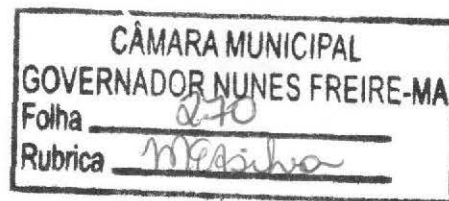 CÂMARA MUNICIPAL
GOVERNADOR NUNES FREIRE-MA
Folha 270
Rubrica